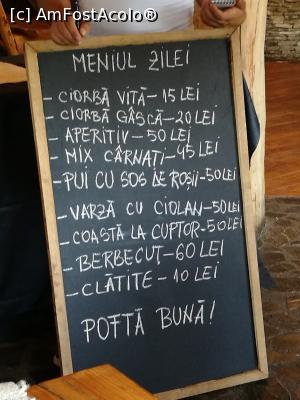 [c] AmFostAcolo®
MENIUL ZILEI
- CIORBĂ VITĂ - 15 LEI
- CIORBĂ GÂSCĂ - 20 LEI
- APERITIV - 50 LEI
- MIX CÂRNAȚI - 45 LEI
- PUI CU SOS DE ROȘII - 50 LEI
- VARZĂ CU CIOLAN - 50 LEI
- COASTĂ LA CUPTOR - 50 LEI
- BERBECUȚ - 60 LEI
- CLĂTITE - 10 LEI
POFTĂ BUNĂ!